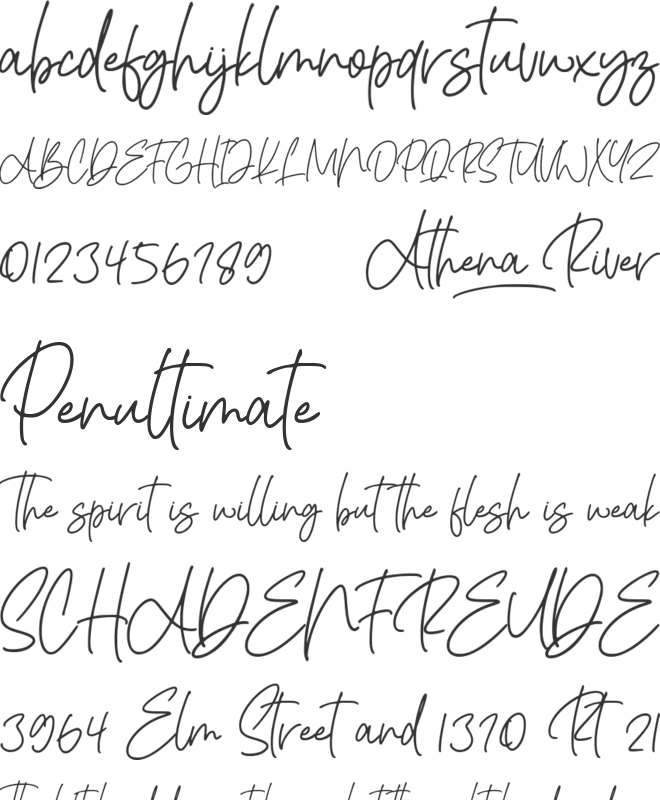 abcdefghijklmnopqrstuvwxyz
ABCDEFGHIJKLMNOPQRSTUVWXYZ
0123456789 Athena River
Penultimate
The spirit is willing but the flesh is weak
SCHADENFREUDE
3964 Elm Street and 1370 Rt 21